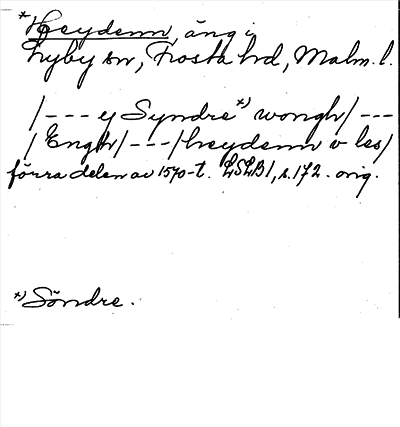 *Heydenn, äng i
Lyby sn, Frosta hd, Malm. l.
/--- ej Syndre *) wongh/ ---
/Engh/ ---/heydenn v les/
förra delen av 1570-t. LSLB1, s. 172. orig.
*) Söndre.